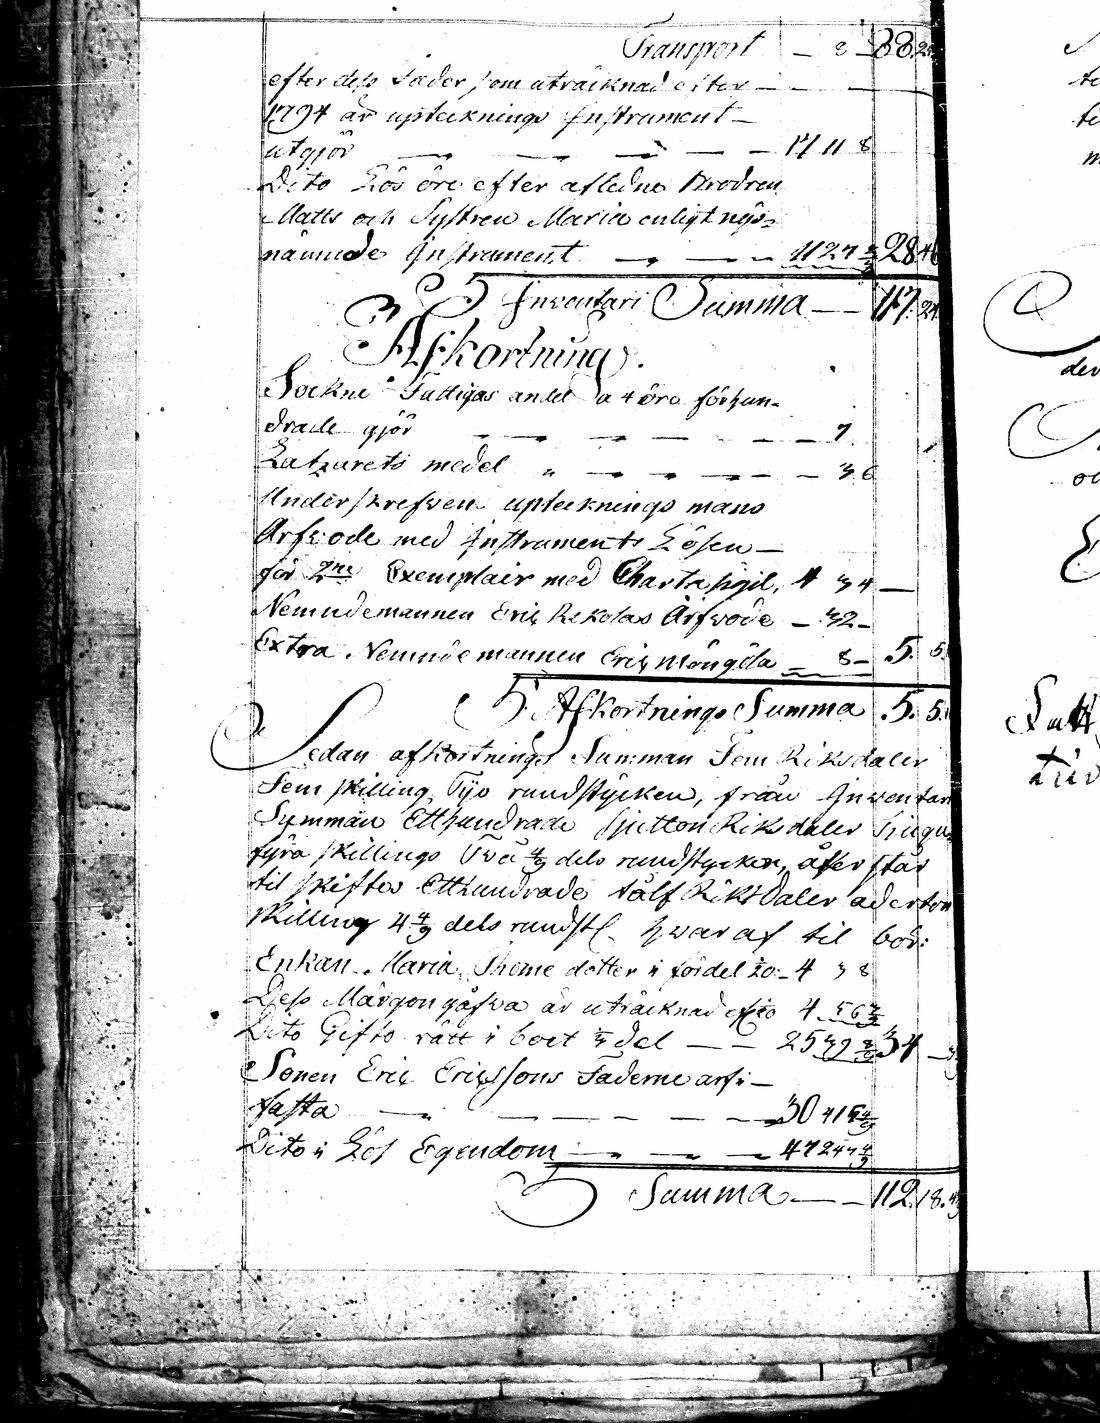 Transport — 8 — 88.
efter dess Fader, som uträcknad efter
1794 år uptecknings Instrument
utgjör — — — — — 17 11 8
Dito Lös öre efter afledne Brodren
Matts och Systren Maria enligt nys-
nämnde Instrument — — — 28
Inventarii Summa — — 117. 24
Afkortning.
Sockne Fattigas andel a 4 öre förhun-
drade gjör — — — — — — 7
Latzarets medel " — — — — 3 6
Underskrefven uptecknings mans
Arfvode med Instruments Lösen —
för 2ne Exemplair med Charta Sigil. 4 34 —
Nemndemannen Eric Rekolas Arfvode — 32 —
Extra Nemndemannen Eric Mångåla — 8 — 5. 5.
Afkortnings Summa 5. 5.
Sedan afkortnings Summan Fem Riksdaler
Fem skilling Tijo rundstycken, från Inventarii
Summan Etthundrade Sjutton Riksdaler Tjugu
fyra skillings Två 4/9 dels rundstycken, åferstår
til skiftes Etthundrade tålf Riksdaler aderton
skilling 4 4/9 dels rundst. hvaraf til bör:
Enkan Maria Thome dotter i fördel — 4 3 8
Dess Märgongåfva är uträcknad 4
Dito Gifto rätt i boet 1/3 del — — 25 34
Sonen Eric Ericssons Faderne arf i
fasta — — — — — — 30
Dito i Lös Egendom — — — 47
Summa — — 112. 18.